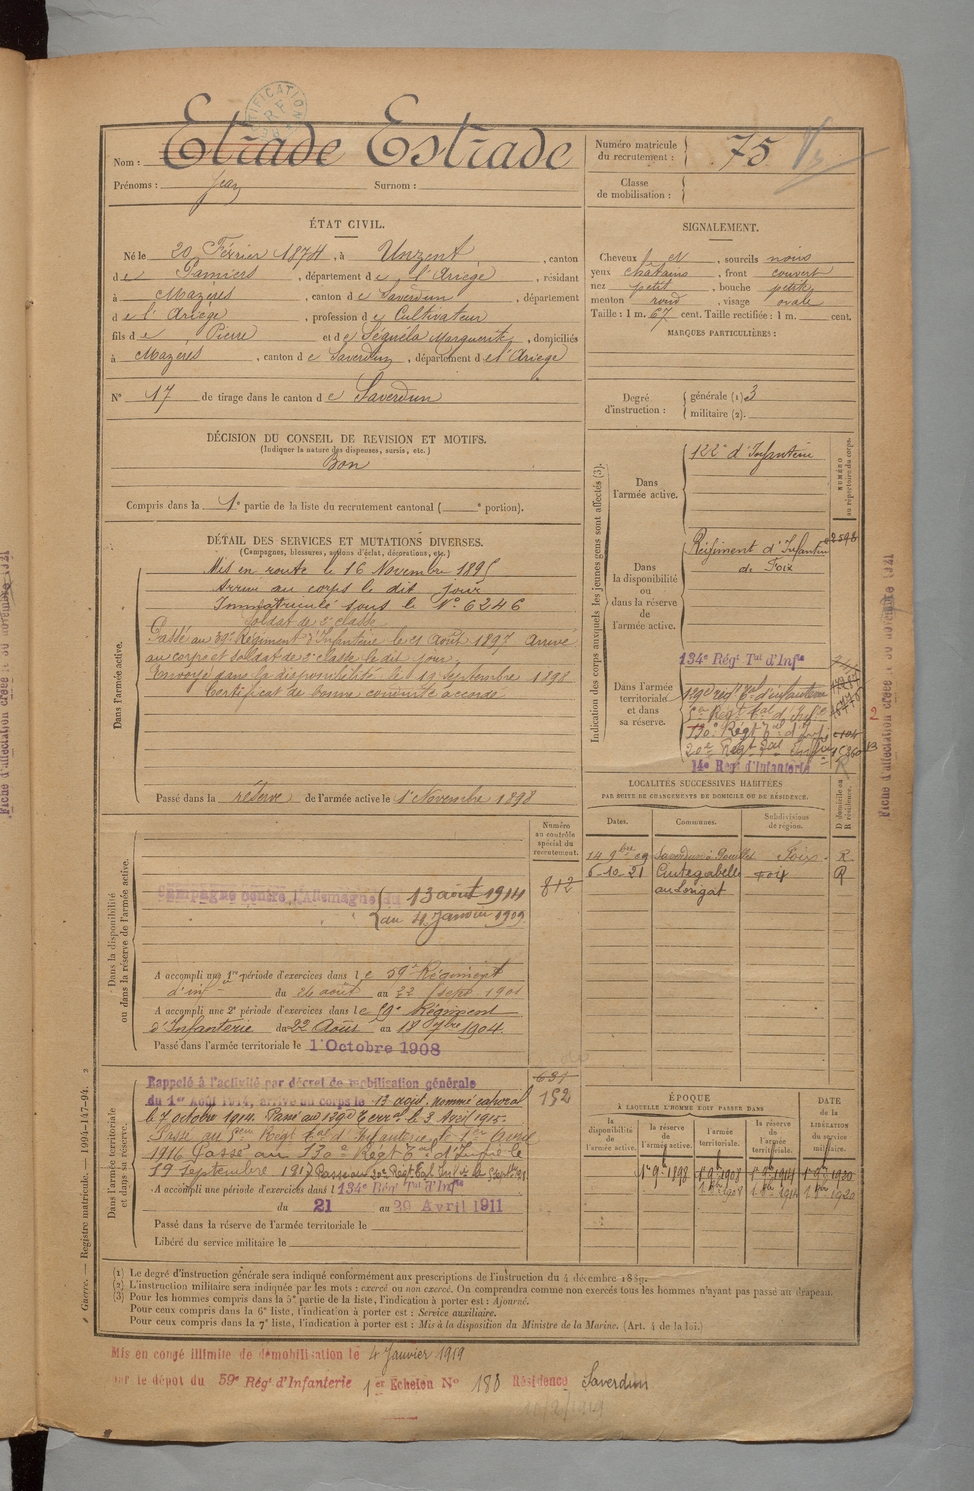 RECTIFICATION
R.F.
Nom : Etrade Estrade
Prénoms : Jean Surnom :
Numéro matricule du recrutement : 75
Classe de mobilisation :
ÉTAT CIVIL.
Né le 20 Février 1874, à Unzent, canton
de Pamiers, département de l'Ariège, résidant
à Mazères, canton de Saverdun, département
de l'Ariège, profession de Cultivateur
fils de Pierre et de Séguéla Marguerite, domiciliés
à Mazères, canton de Saverdun, département de l'Ariège
N° 17 de tirage dans le canton de Saverdun
SIGNALEMENT.
Cheveux et, sourcils noirs
yeux châtains, front couvert
nez petit, bouche petite
menton rond, visage ovale
Taille : 1 m. 67 cent. Taille rectifiée : 1 m. cent.
MARQUES PARTICULIÈRES :
Degré d'instruction : générale (1) 3
militaire (2).
DÉCISION DU CONSEIL DE REVISION ET MOTIFS.
(Indiquer la nature des dispenses, sursis, etc.)
Bon
Compris dans la 1e partie de la liste du recrutement cantonal ( e portion).
DÉTAIL DES SERVICES ET MUTATIONS DIVERSES.
(Campagnes, blessures, actions d'éclat, décorations, etc.)
Dans l'armée active.
Mis en route le 16 Novembre 1895
Arrivé au corps le dit jour
Immatriculé sous le N° 6246
Soldat de 2e classe
Passé au 59e Régiment d'Infanterie le 21 Août 1897 Arrivé
au corps et soldat de 2e classe le dit jour
Envoyé dans la disponibilité le 19 Septembre 1898
Certificat de bonne conduite accordé
Passé dans la réserve de l'armée active le 1er Novembre 1898
Indication des corps auxquels les jeunes gens sont affectés (3).
NUMÉRO au répertoire du corps.
Dans l'armée active.
122e d'Infanterie
Dans la disponibilité ou dans la réserve de l'armée active.
Régiment d'Infanterie 2598
de Foix
Dans l'armée territoriale et dans sa réserve.
134e Régt Tal d'Infie
129e regt tal d'infanterie
5e Régt tal d'Infie 2
130e Régt Tal d'Infie
20e Régt Tal Infie
14e Régt d'Infanterie
LOCALITÉS SUCCESSIVES HABITÉES
PAR SUITE DE CHANGEMENTS DE DOMICILE OU DE RÉSIDENCE.
Dates. Communes. Subdivisions de région. D domicile ou R résidence.
14 9bre 09 Saverdun à Foix R
6-10-21 Cintegabelle Foix R
au Longat
Numéro au contrôle spécial du recrutement.
812
Dans la disponibilité ou dans la réserve de l'armée active.
Campagne contre l'Allemagne du 13 août 1914
au 4 Janvier 1919
A accompli une 1re période d'exercices dans le 59e Régiment
d'infie du 26 août au 22 Sept 1901
A accompli une 2e période d'exercices dans le 59e Régiment
d'Infanterie du 22 Août au 18 7bre 1904
Passé dans l'armée territoriale le 1 Octobre 1908
Dans l'armée territoriale et dans sa réserve.
631
152
Rappelé à l'activité par décret de mobilisation générale
du 1er Août 1914, arrivé au corps le 13 août. nommé caporal
le 7 octobre 1914. Passé au 129e Terral le 3 Avril 1915.
Passé au 5eme Régt tal d'Infanterie le 1er Avril
1916 Passé au 130e Régt Tal d'Infie le
19 Septembre 1917 Passé au 20e Régt Tal Inf le
A accompli une période d'exercices dans le 134e Régt Tal d'Infie
du 21 au 29 Avril 1911
Passé dans la réserve de l'armée territoriale le
Libéré du service militaire le
ÉPOQUE
À LAQUELLE L'HOMME DOIT PASSER DANS
la disponibilité de l'armée active. la réserve de l'armée active. l'armée territoriale. la réserve de l'armée territoriale.
DATE de la LIBÉRATION du service militaire.
1er 9bre 1898 1er 9bre 1908 1er 9bre 1914 1er 9bre 1920
1er 8bre 1908 1er 8bre 1914 1er 8bre 1920
(1) Le degré d'instruction générale sera indiqué conformément aux prescriptions de l'instruction du 4 décembre 1889.
(2) L'instruction militaire sera indiquée par les mots : exercé ou non exercé. On comprendra comme non exercés tous les hommes n'ayant pas passé au drapeau.
(3) Pour les hommes compris dans la 5e partie de la liste, l'indication à porter est : Ajourné.
Pour ceux compris dans la 6e liste, l'indication à porter est : Service auxiliaire.
Pour ceux compris dans la 7e liste, l'indication à porter est : Mis à la disposition du Ministre de la Marine. (Art. 4 de la loi.)
Guerre. — Registre matricule. — 1994-147-94. 2
Mis en congé illimité de démobilisation le 4 Janvier 1919
par le dépôt du 59e Régt d'Infanterie 1er Echelon N° 188 Résidence Saverdun
10/2/1919
Fiche d'affectation créée le 30 novembre 1921
Fiche d'affectation créée le 30 novembre 1921